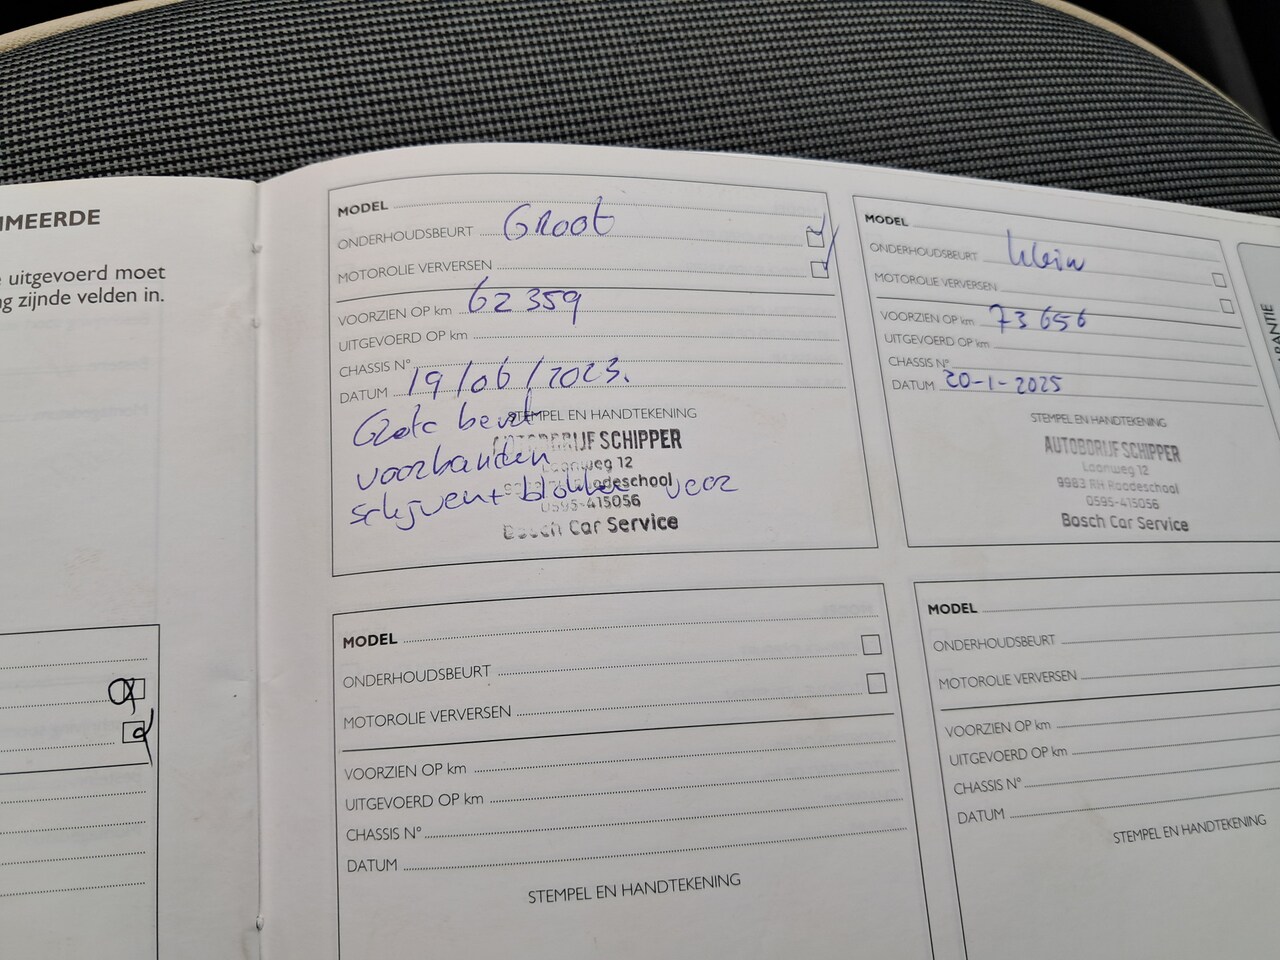 IMEERDE
e uitgevoerd moet
g zijnde velden in.
MODEL
ONDERHOUDSBEURT GROOT
MOTOROLIE VERVERSEN
VOORZIEN OP km 62359
UITGEVOERD OP km
CHASSIS N°
DATUM 19/06/2023.
STEMPEL EN HANDTEKENING
Grote beurt
voorbanden
schijven + blokken voor
AUTOBDRIJF SCHIPPER
Laanweg 12
Roodeschool
0595-415056
Bosch Car Service
MODEL
ONDERHOUDSBEURT klein
MOTOROLIE VERVERSEN
VOORZIEN OP km 73656
UITGEVOERD OP km
CHASSIS N°
DATUM 20-1-2025
STEMPEL EN HANDTEKENING
AUTOBDRIJF SCHIPPER
Laanweg 12
9983 RH Roodeschool
0595-415056
Bosch Car Service
RANTIE
MODEL
ONDERHOUDSBEURT
MOTOROLIE VERVERSEN
VOORZIEN OP km
UITGEVOERD OP km
CHASSIS N°
DATUM
STEMPEL EN HANDTEKENING
MODEL
ONDERHOUDSBEURT
MOTOROLIE VERVERSEN
VOORZIEN OP km
UITGEVOERD OP km
CHASSIS N°
DATUM
STEMPEL EN HANDTEKENING